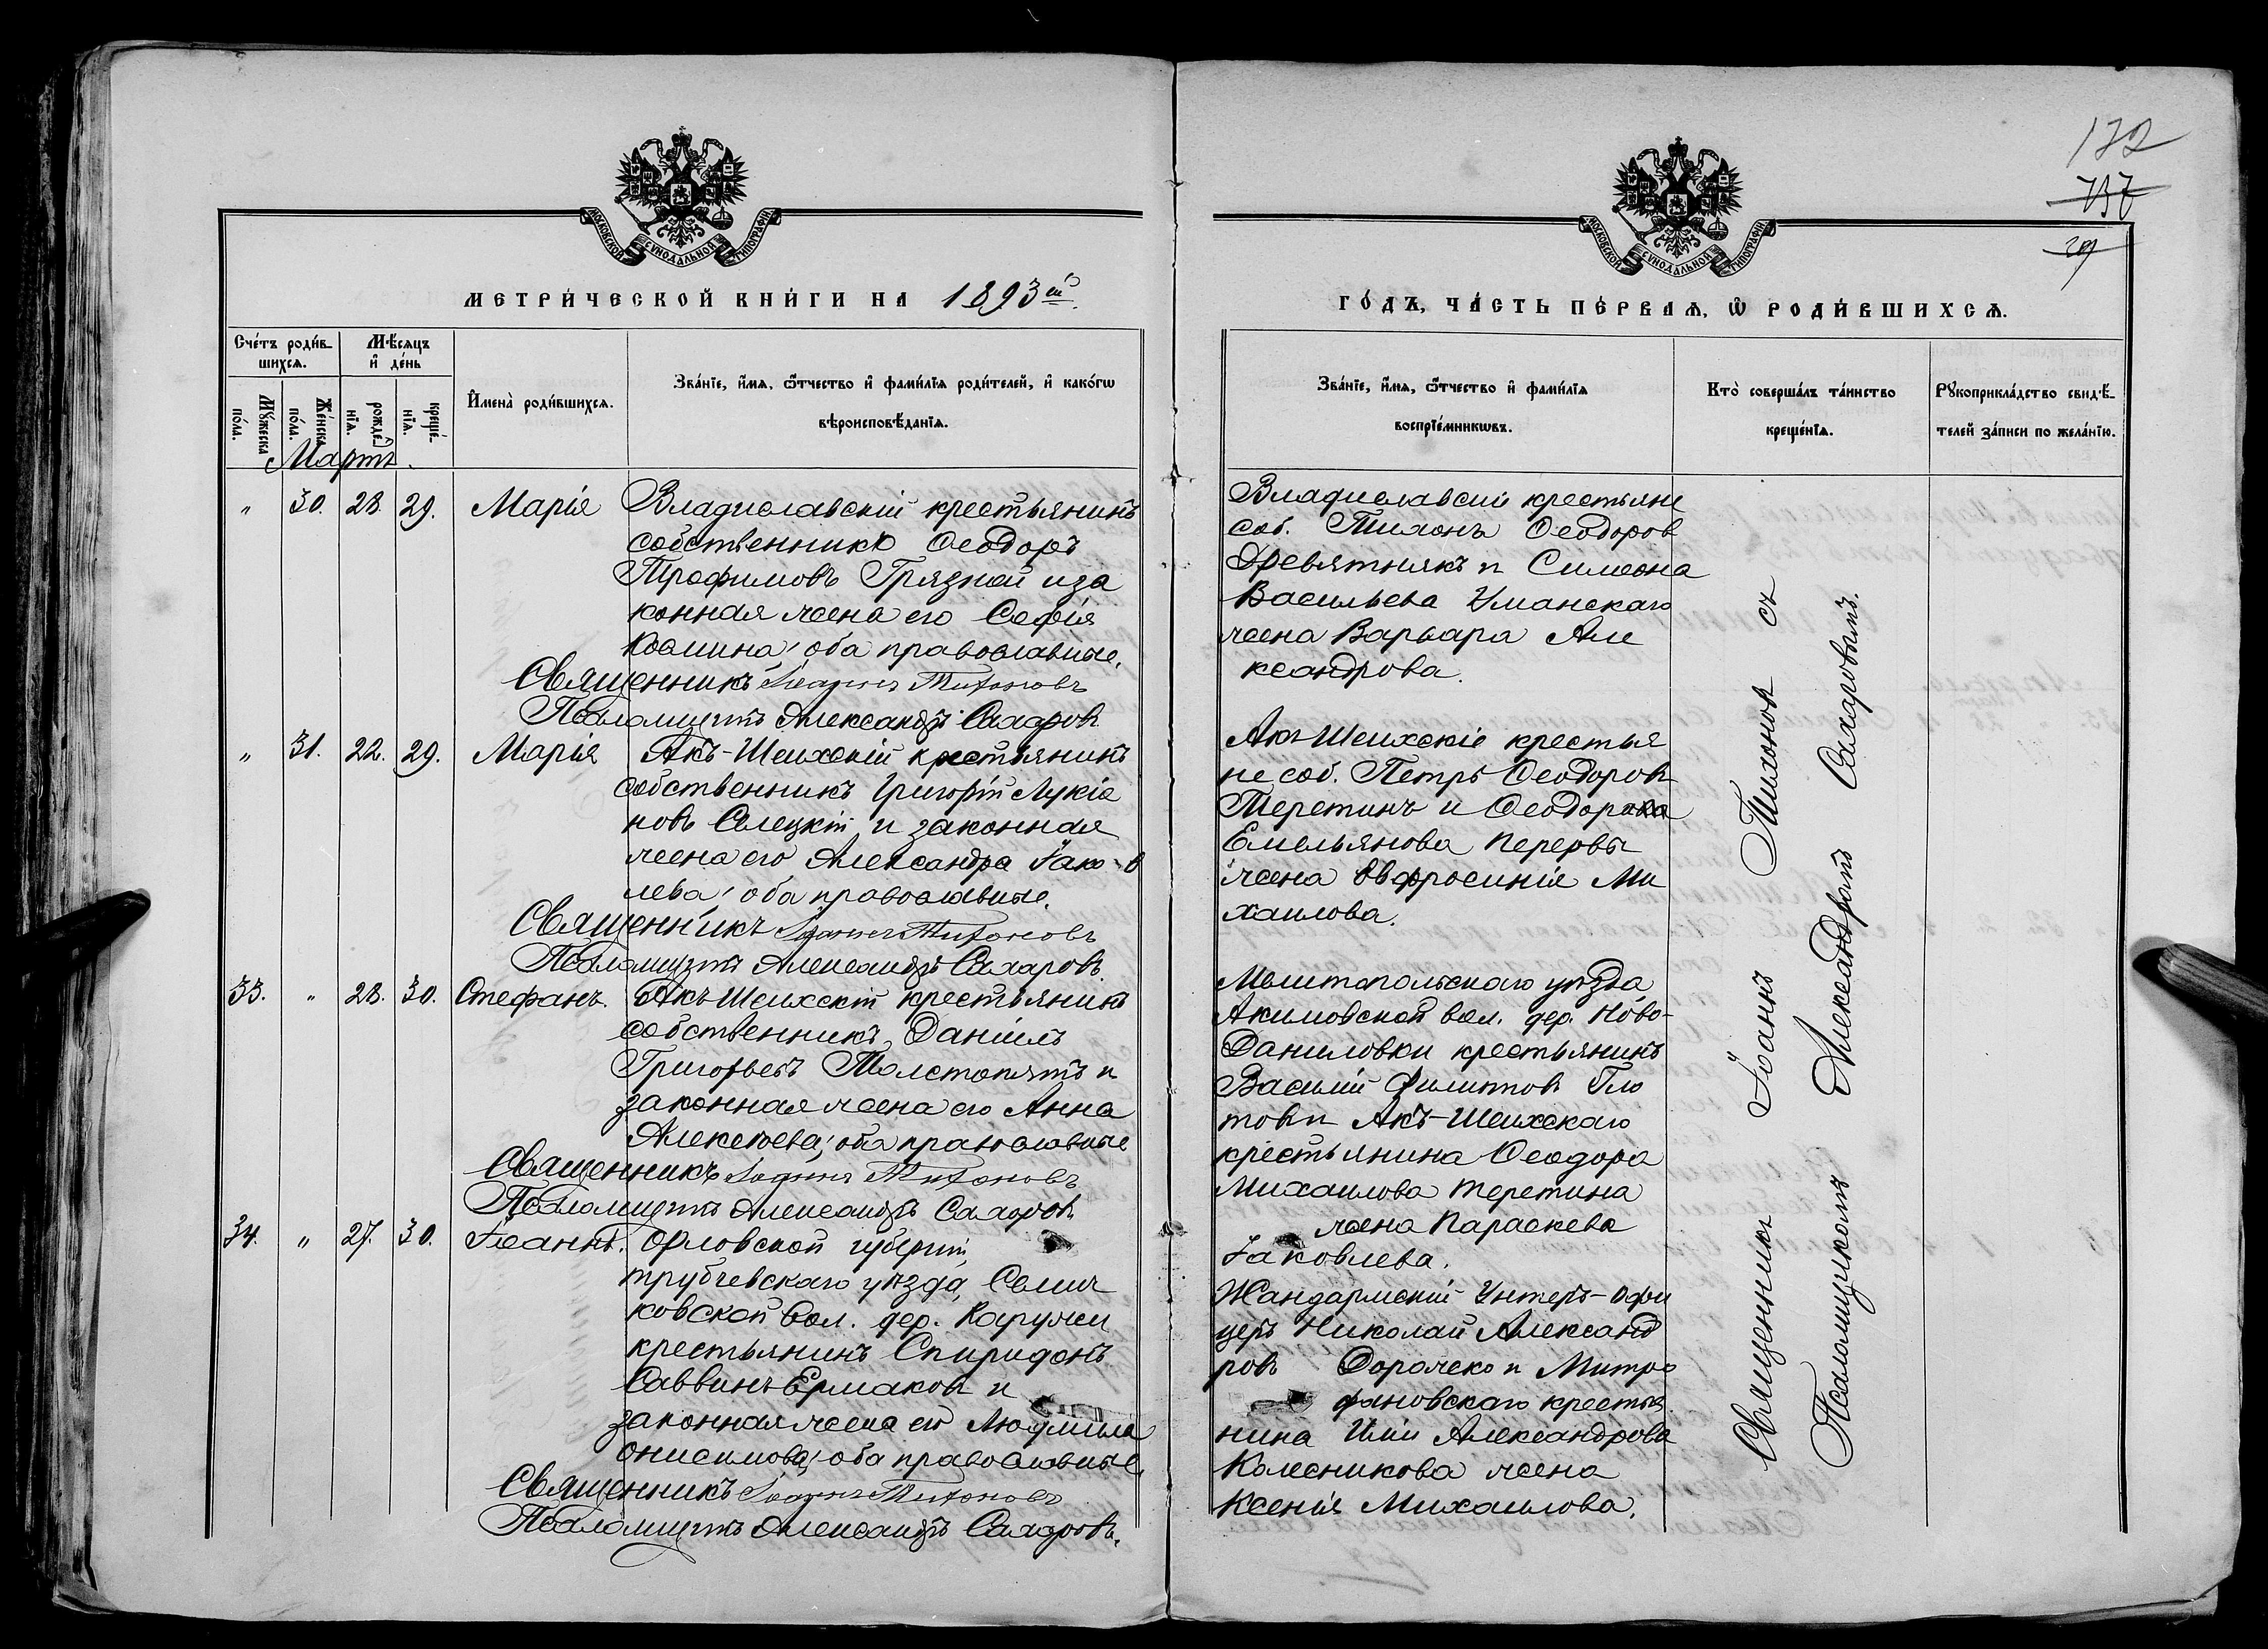 МОСКОВСКОЙ СѴНОДАЛЬНОЙ ТИПОГРАФІИ
МЕТРИ́ЧЕСКОЙ КНИ́ГИ НА 1893й
Сче́тъ роди́в-
шихсѧ.
Мѣ́сѧцъ
и҆ де́нь
Мꙋ́жеска
по́ла.
Же́нска
по́ла.
рожде́-
нїѧ.
креще́-
нїѧ.
И҆мена̀ роди́вшихсѧ.
Зва́нїе, и҆́мѧ, ѻ҆́тчество и҆ фами́лїѧ роди́телей, и҆ како́гѡ
вѣроисповѣ́данїѧ.
Мартъ.
„ 30. 28. 29. Марія Владиславскій крестьянинъ
собственникъ Ѳеодоръ
Трофимовъ Грязной и за
конная жена его Софія
Космина; оба православные.
Священникъ Іоаннъ Тихоновъ
Псаломщикъ Александръ Сахаровъ
„ 31. 22. 29. Марія Акъ-Шеихскій крестьянинъ
собственникъ Григорій Лукіа
новъ Селецкій и законная
жена его Александра Іако-в
лева; оба православные.
Священникъ Іоаннъ Тихоновъ
Псаломщикъ Александръ Сахаровъ.
33. „ 28. 30. Стефанъ. Акъ-Шеихскій крестьянинъ
собственникъ Даніилъ
Григорьевъ Толстопятъ и
законная жена его Анна
Алексѣева; оба православные
Священникъ Іоаннъ Тихоновъ
Псаломщикъ Александръ Сахаровъ
34. „ 27. 30. Іоаннъ. Орловской губерніи,
трубчевскаго уѣзда, Селич
ковской вол. дер.
крестьянинъ Спиридонъ
Саввинъ Ермаковъ и
законная жена его Людмила
Онисимова; оба православные.
Священникъ Іоаннъ Тихоновъ
Псаломщикъ Александръ Сахаровъ.
172
737
МОСКОВСКОЙ СѴНОДАЛЬНОЙ ТИПОГРАФІИ
ГО́ДЪ, ЧА́СТЬ ПЕ́РВАѦ, Ѡ҆ РОДИ́ВШИХСѦ.
Зва́нїе, и҆́мѧ, ѻ҆́тчество и҆ фами́лїѧ
воспрїе́мникѡвъ.
Кто̀ соверша́лъ та́инство
креще́нїѧ.
Рꙋкоприкла́дство свидѣ́-
телей за́писи по жела́нїю.
Владиславскіи крестьяне
соб. Тихонъ Ѳеодоров
Древятнякъ и Симеона
Васильева Уманскаго
жена Варвара Але
ксандрова.
Акъ-Шеихскіе крестья
не соб. Петръ Ѳеодоровъ
Теретинъ и Ѳеодора
Емельянова Перервы
жена Евфросинія Ми
хаилова.
Мелитопольскаго уѣзда,
Акимовской вол. дер. Ново-
Даниловки крестьянинъ
Василій Филиповъ Гло
товъ и Акъ-Шеихскаго
крестьянина Ѳеодора
Михаилова Теретина
жена Параскева
Іаковлева.
Жандармскій Унтеръ-офи
церъ Николай Александ
ровъ Дорожко и Митро
фановскаго крестья
нина Иліи Александрова
Колесникова жена
Ксенія Михаилова.
Священникъ Іоаннъ Тихоновъ съ
Псаломщикомъ Александромъ Сахаровымъ.